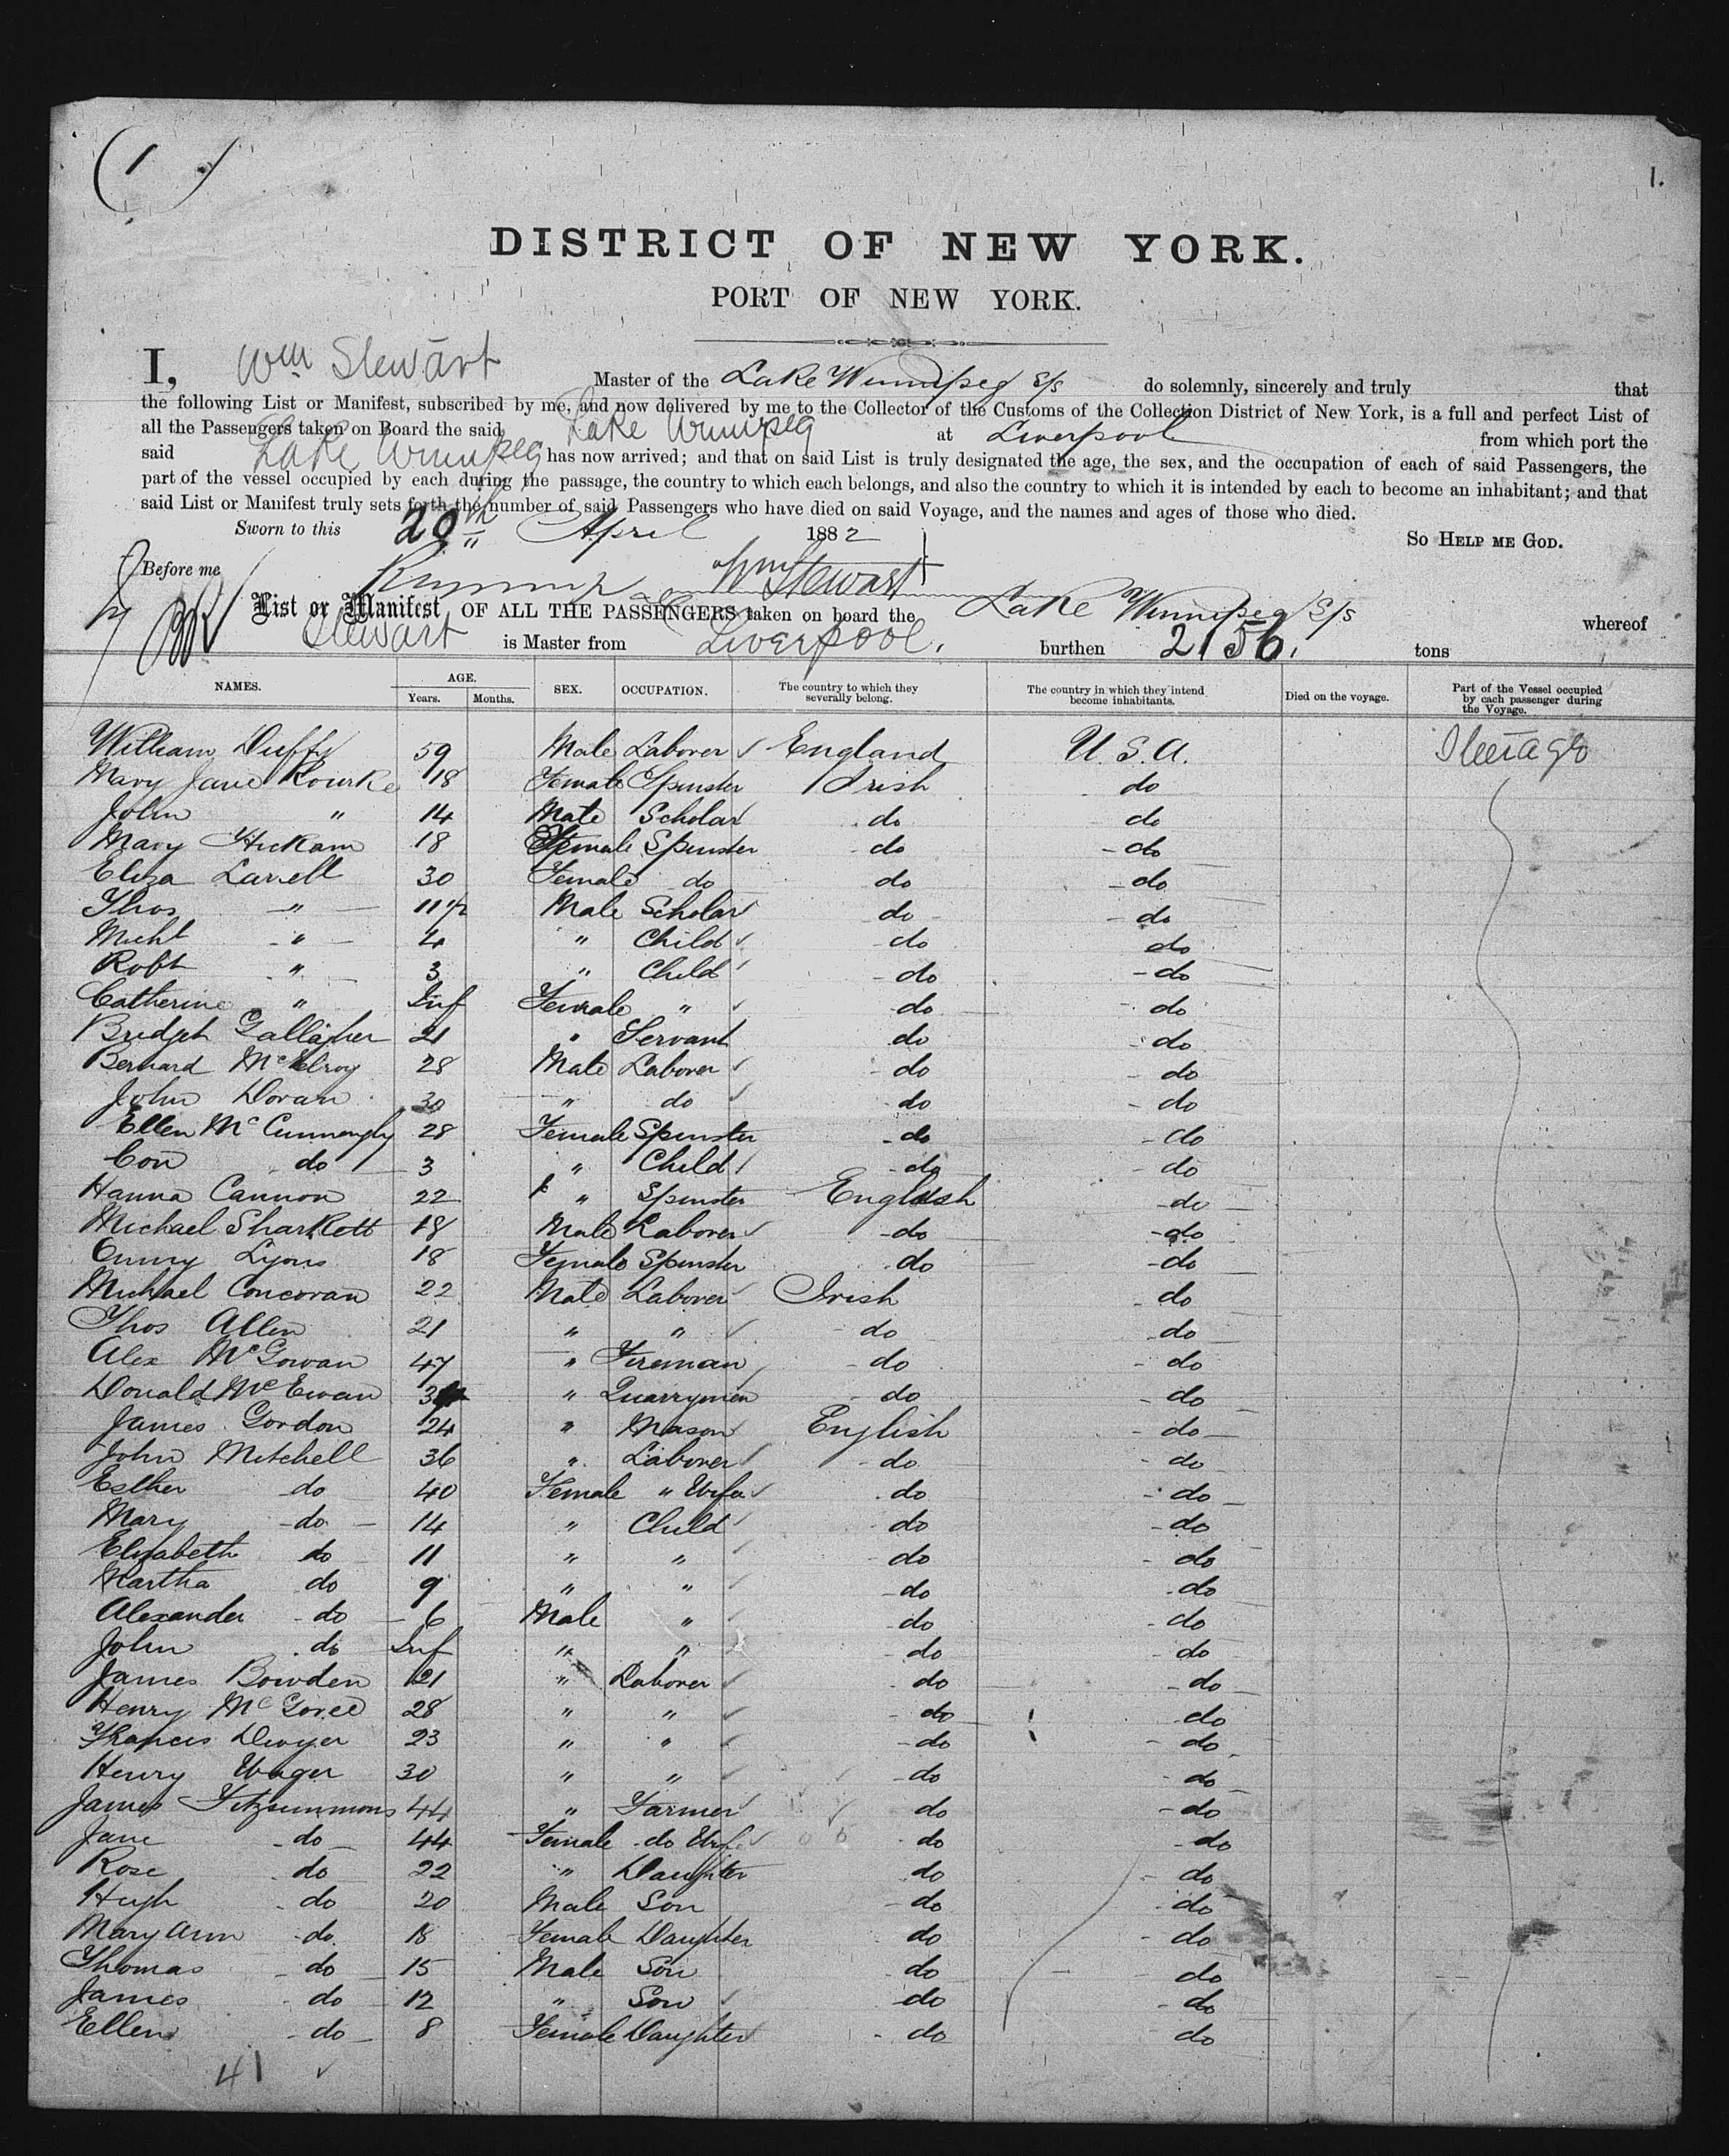 ( 1 )
1.
DISTRICT OF NEW YORK.
PORT OF NEW YORK.
I, Wm Stewart Master of the Lake Winnipeg S/s do solemnly, sincerely and truly that
the following List or Manifest, subscribed by me, and now delivered by me to the Collector of the Customs of the Collection District of New York, is a full and perfect List of
all the Passengers taken on Board the said Lake Winnipeg at Liverpool from which port the
said Lake Winnipeg has now arrived; and that on said List is truly designated the age, the sex, and the occupation of each of said Passengers, the
part of the vessel occupied by each during the passage, the country to which each belongs, and also the country to which it is intended by each to become an inhabitant; and that
said List or Manifest truly sets forth the number of said Passengers who have died on said Voyage, and the names and ages of those who died.
Sworn to this 20th April 1882 So HELP ME GOD.
Before me Wm Stewart
List or Manifest OF ALL THE PASSENGERS taken on board the Lake Winnipeg S/s whereof
Stewart is Master from Liverpool. burthen 2156. tons
NAMES. AGE. Years. Months. SEX. OCCUPATION. The country to which they severally belong. The country in which they intend become inhabitants. Died on the voyage. Part of the Vessel occupied by each passenger during the Voyage.
William Duffy 59 Male Laborer England U.S.A. Steerage
Mary Jane Rourke 18 Female Spinster Irish do
John " 14 Male Scholar do do
Mary Hickam 18 Female Spinster do do
Eliza Larrell 30 Female do do do
Thos " 11 1/2 Male Scholar do do
Michl " 4 " Child do do
Robt " 3 " Child do do
Catherine " Inf Female " do do
Bridget Gallagher 21 " Servant do do
Bernard McElroy 28 Male Laborer do do
John Doran 30 " do do do
Ellen Mc 28 Female Spinster do do
Con do 3 " Child do do
Hanna Cannon 22 " Spinster English do
Michael Sharkett 18 Male Laborer do do
Lyons 18 Female Spinster do do
Michael Concoran 22 Male Laborer Irish do
Thos Allen 21 " " do do
Alex McGowan 47 " Fireman do do
Donald McEwan " Quarryman do do
James Gordon 24 " Mason English do
John Mitchell 36 " Laborer do do
Esther do 40 Female " Wife do do
Mary do 14 " Child do do
Elizabeth do 11 " " do do
Martha do 9 " " do do
Alexander do 6 Male " do do
John do Inf " " do do
James Bowden 21 " Laborer do do
Henry McGoree 28 " " do do
Francis Dwyer 23 " " do do
Henry Wager 30 " " do do
James Fitzsimmons 44 " Farmer do do
Jane do 44 Female do Wife do do
Rose do 22 " Daughter do do
Hugh do 20 Male Son do do
Mary Ann do 18 Female Daughter do do
Thomas do 15 Male Son do do
James do 12 " Son do do
Ellen do 8 Female Daughter do do
41